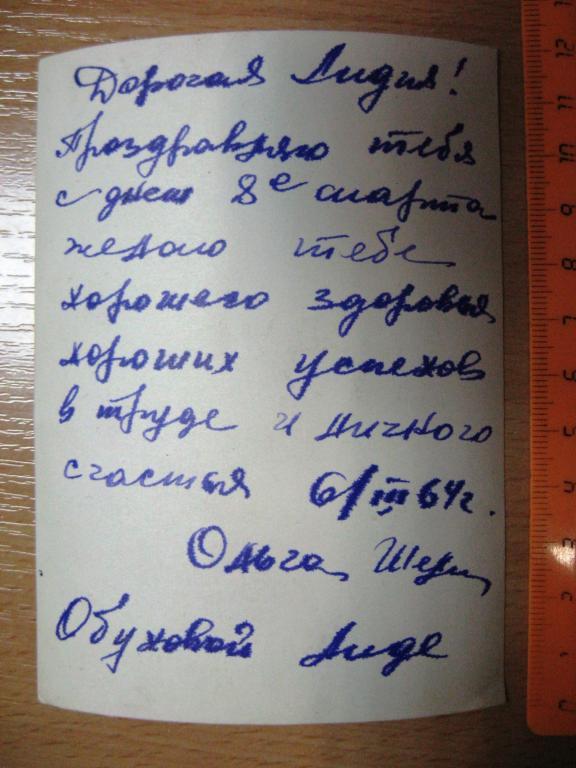 Дорогая Лидия!
Проздравляю тебя
с днем 8е марта
желаю тебе
хорошего здоровья
хороших успехов
в труде и личного
счастья 6/III 64г.
Ольга
Обуховой Лиде
12
11
10
9
8
7
6
5
4
3
2
1
0